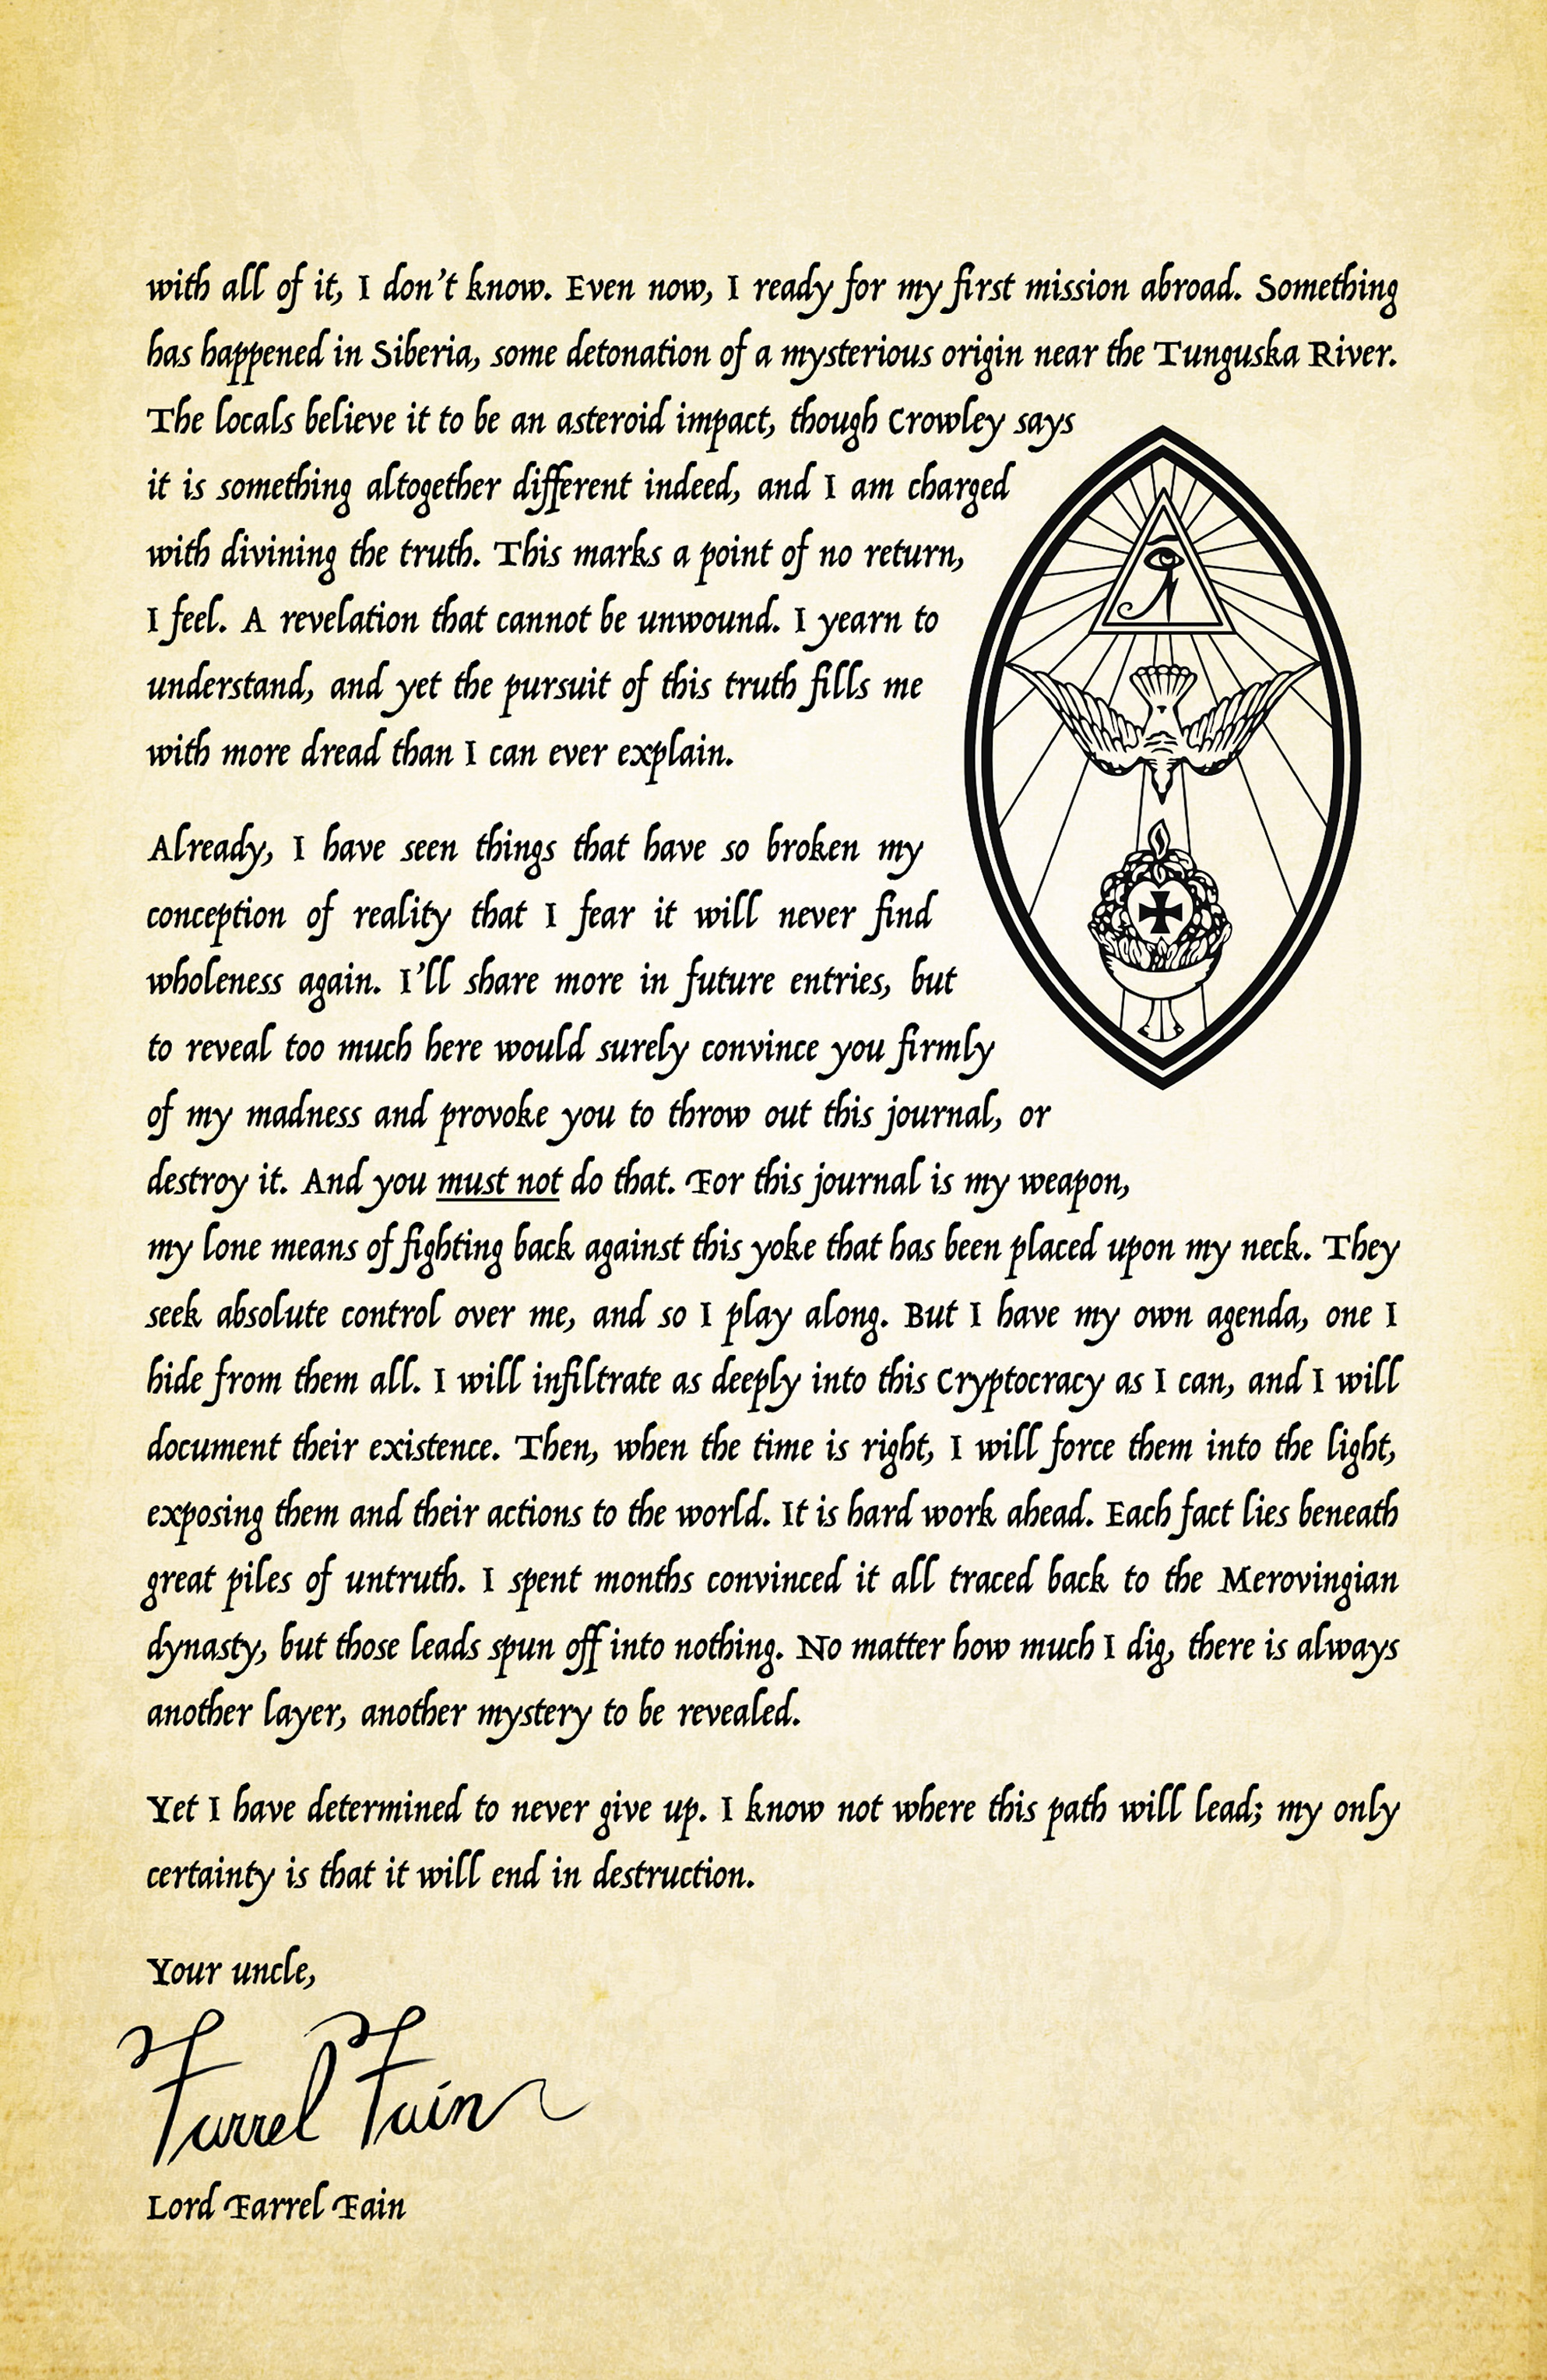 with all of it, I don't know. Even now, I ready for my first mission abroad. Something
has happened in Siberia, some detonation of a mysterious origin near the Tunguska River.
The locals believe it to be an asteroid impact, though Crowley says
it is something altogether different indeed, and I am charged
with divining the truth. This marks a point of no return,
I feel. A revelation that cannot be unwound. I yearn to
understand, and yet the pursuit of this truth fills me
with more dread than I can ever explain.
Already, I have seen things that have so broken my
conception of reality that I fear it will never find
wholeness again. I'll share more in future entries, but
to reveal too much here would surely convince you firmly
of my madness and provoke you to throw out this journal, or
destroy it. And you must not do that. For this journal is my weapon,
my lone means of fighting back against this yoke that has been placed upon my neck. They
seek absolute control over me, and so I play along. But I have my own agenda, one I
hide from them all. I will infiltrate as deeply into this Cryptocracy as I can, and I will
document their existence. Then, when the time is right, I will force them into the light,
exposing them and their actions to the world. It is hard work ahead. Each fact lies beneath
great piles of untruth. I spent months convinced it all traced back to the Merovingian
dynasty, but those leads spun off into nothing. No matter how much I dig, there is always
another layer, another mystery to be revealed.
Yet I have determined to never give up. I know not where this path will lead; my only
certainty is that it will end in destruction.
Your uncle,
Farrel Fain
Lord Farrel Fain